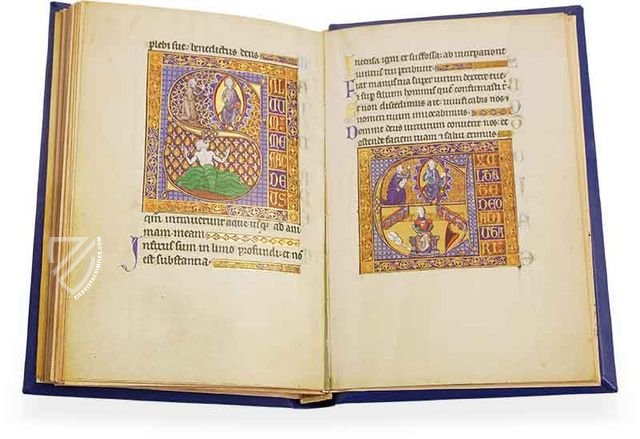 plebi sue: benedictus deus
ALUUM
ME
FAC
DEUS
qm intraverunt aque usq; ad ani
mam meam
Infixus sum in limo profundi: et nō
est substantia
Incensa igni et suffossa: ab increpatione
vultus tui peribunt
Fiat manus tua super virum dextre tue:
et sup filium hominis quē confirmasti t'
Et non discedimus a te vivificabis nos:
et nomen tuum invocabimus
Domine deus virtutum converte nos: et
ostende faciem tuam et salvi erimus
XUL
TA
TE DEO
ADIU
TO
RI
ZIEREISFACSIMILES.COM